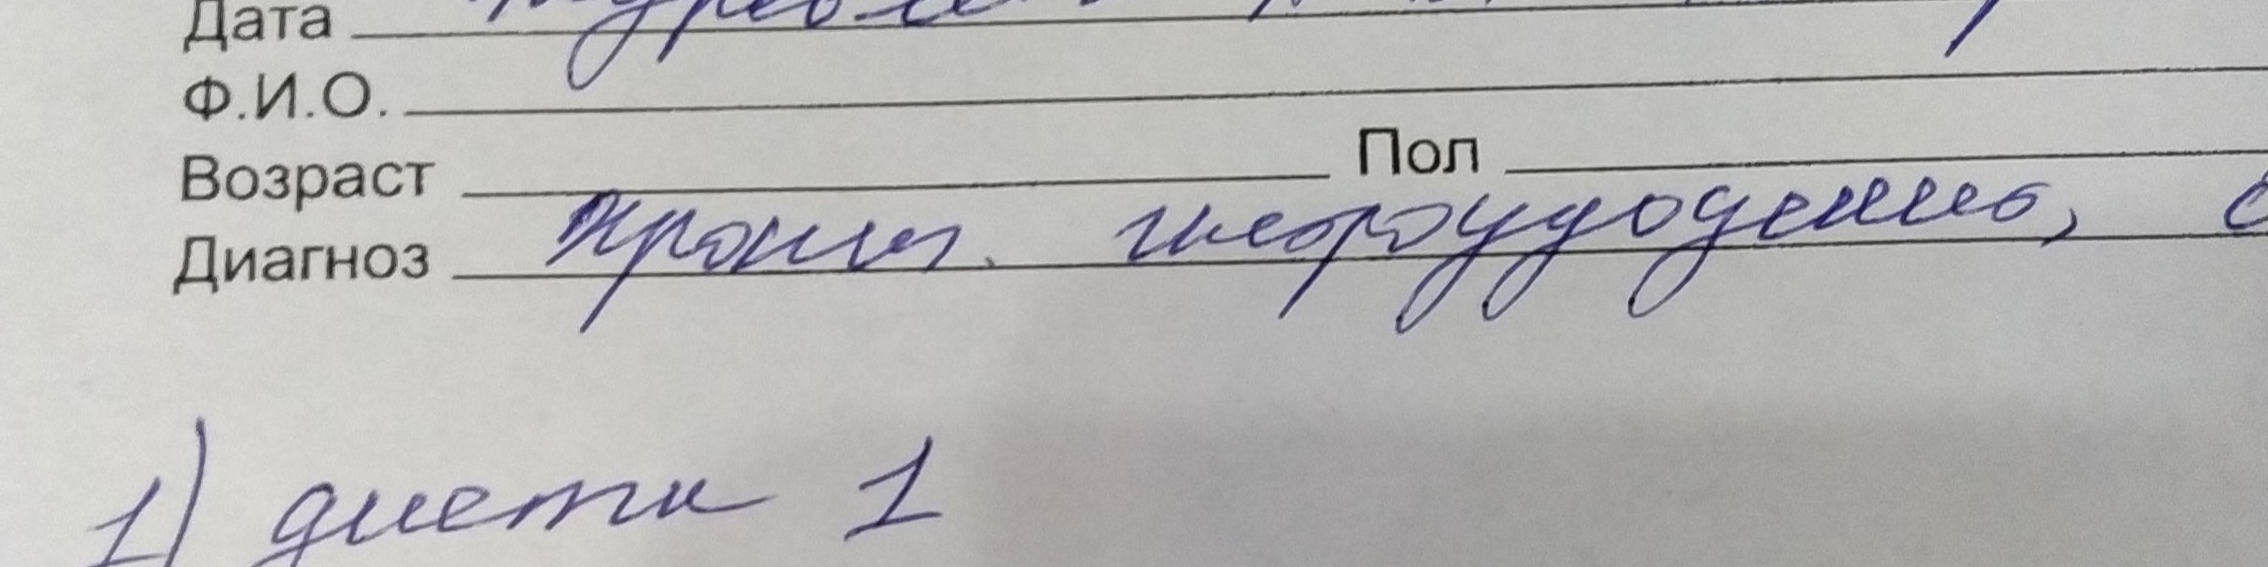 Дата
Ф.И.О.
Возраст Пол
Диагноз Хронич. гастродуоденит,
1) диета 1